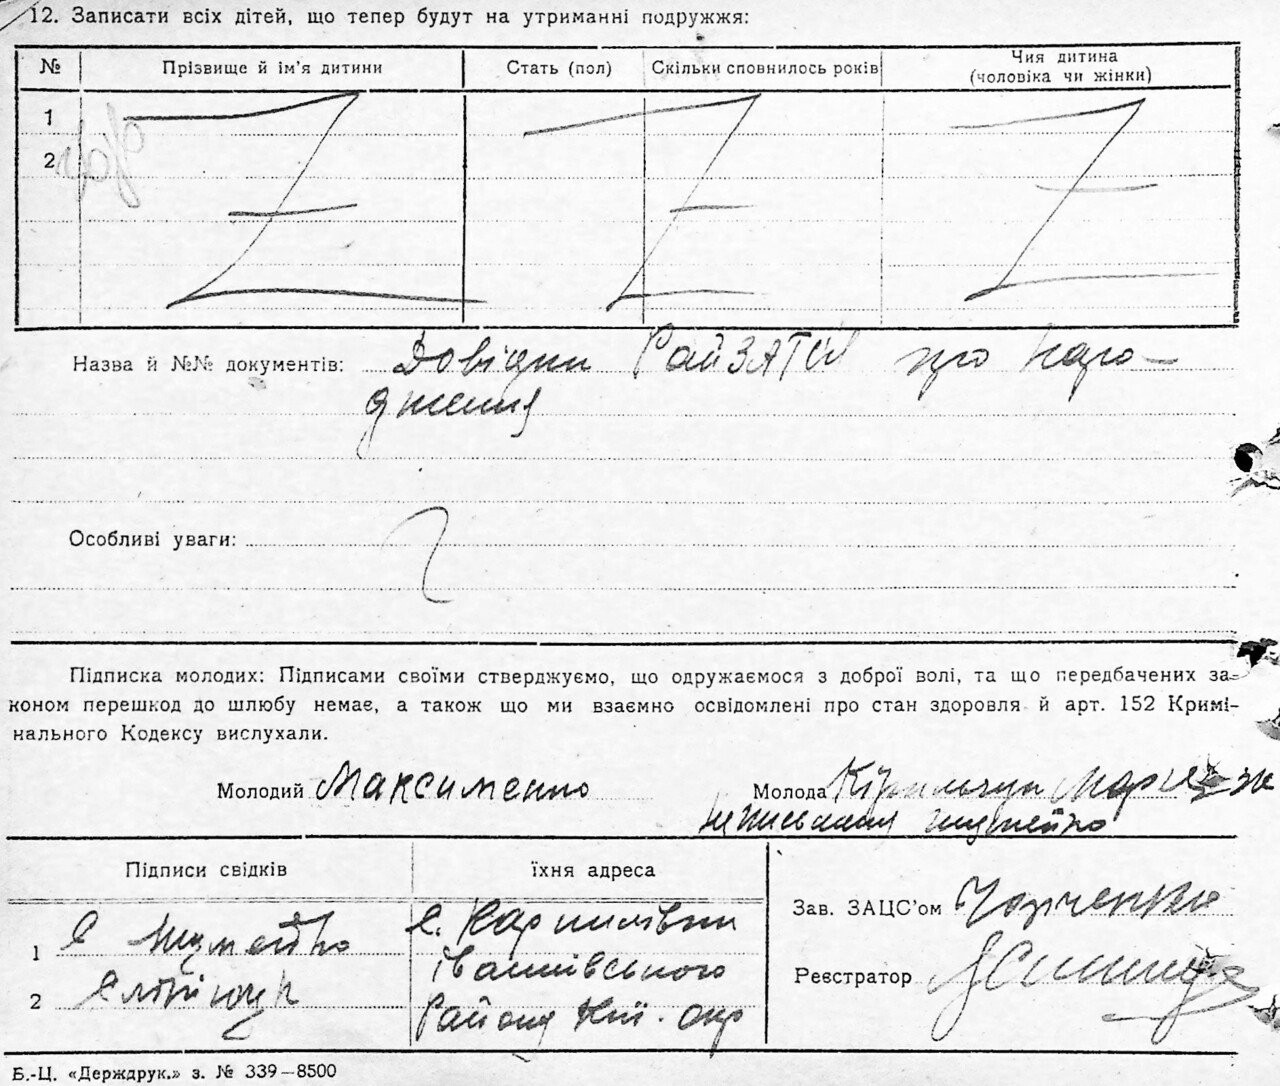 12. Записати всіх дітей, що тепер будут на утриманні подружжя:
№ Прізвище й ім'я дитини Стать (пол) Скільки сповнилось років Чия дитина
(чоловіка чи жінки)
1
2
Назва й №№ документів: Довідки РайЗАГСУ про наро-
дження
Особливі уваги:
Підписка молодих: Підписами своїми стверджуємо, що одружаємося з доброї волі, та що передбачених за-
коном перешкод до шлюбу немає, а також що ми взаємно освідомлені про стан здоровля й арт. 152 Кримі-
нального Кодексу вислухали.
Молодий Максименко Молода
Підписи свідків їхня адреса
Зав. ЗАЦС'ом
1 с. Карпилівки
Іванківського
Реєстратор
2 Району Киї. окр
Б.-Ц. «Держдрук.» з. № 339—8500